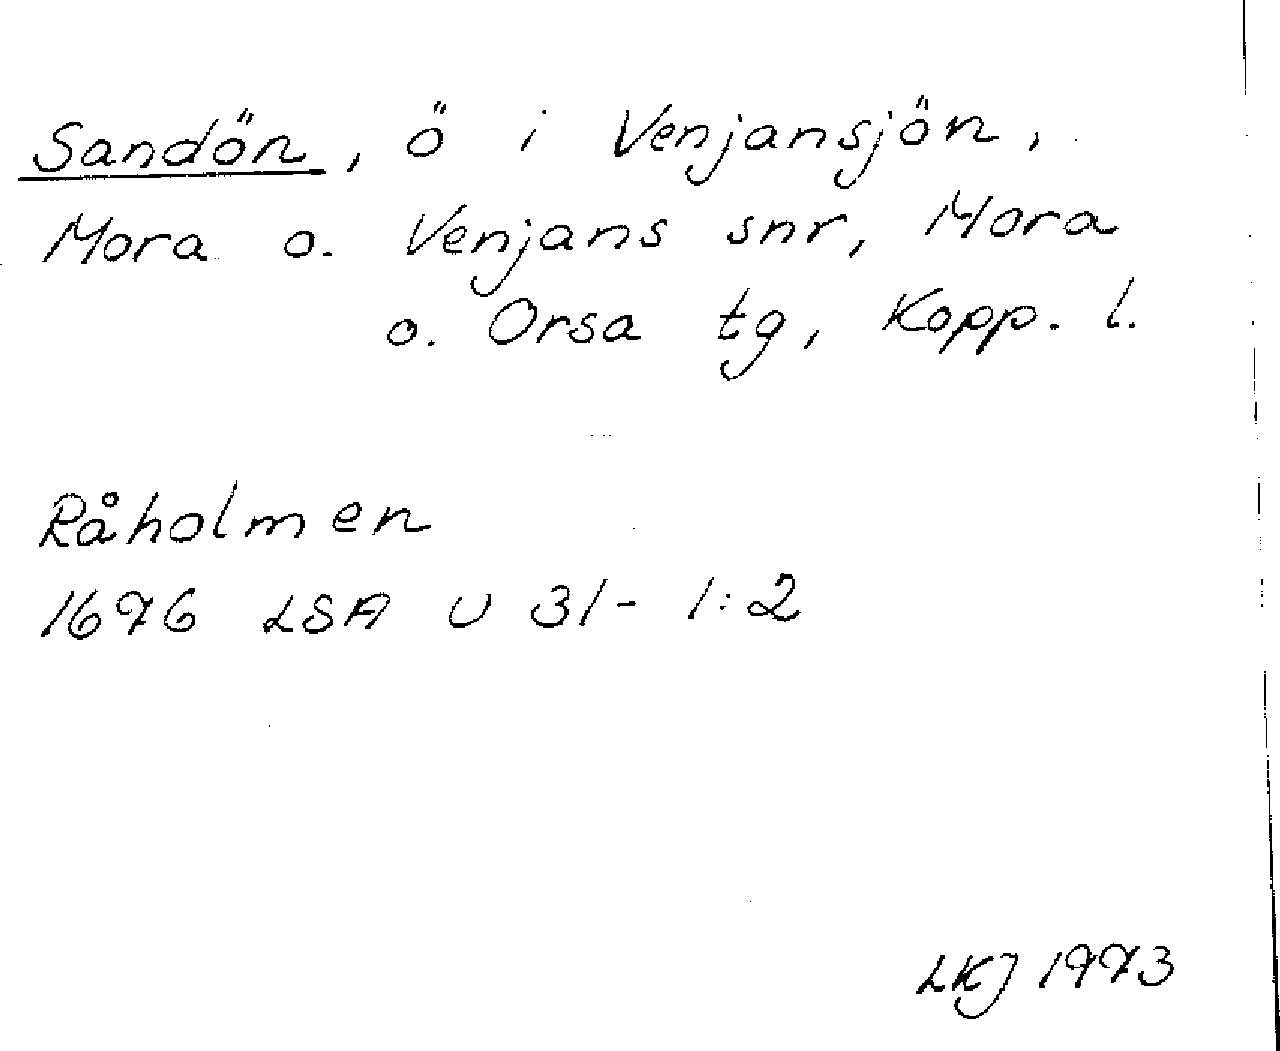 Sandön, ö i Venjansjön,
Mora o. Venjans snr, Mora
o. Orsa tg, Kopp. l.
Råholmen
1696 LSA U 31-1:2
LKJ 1973